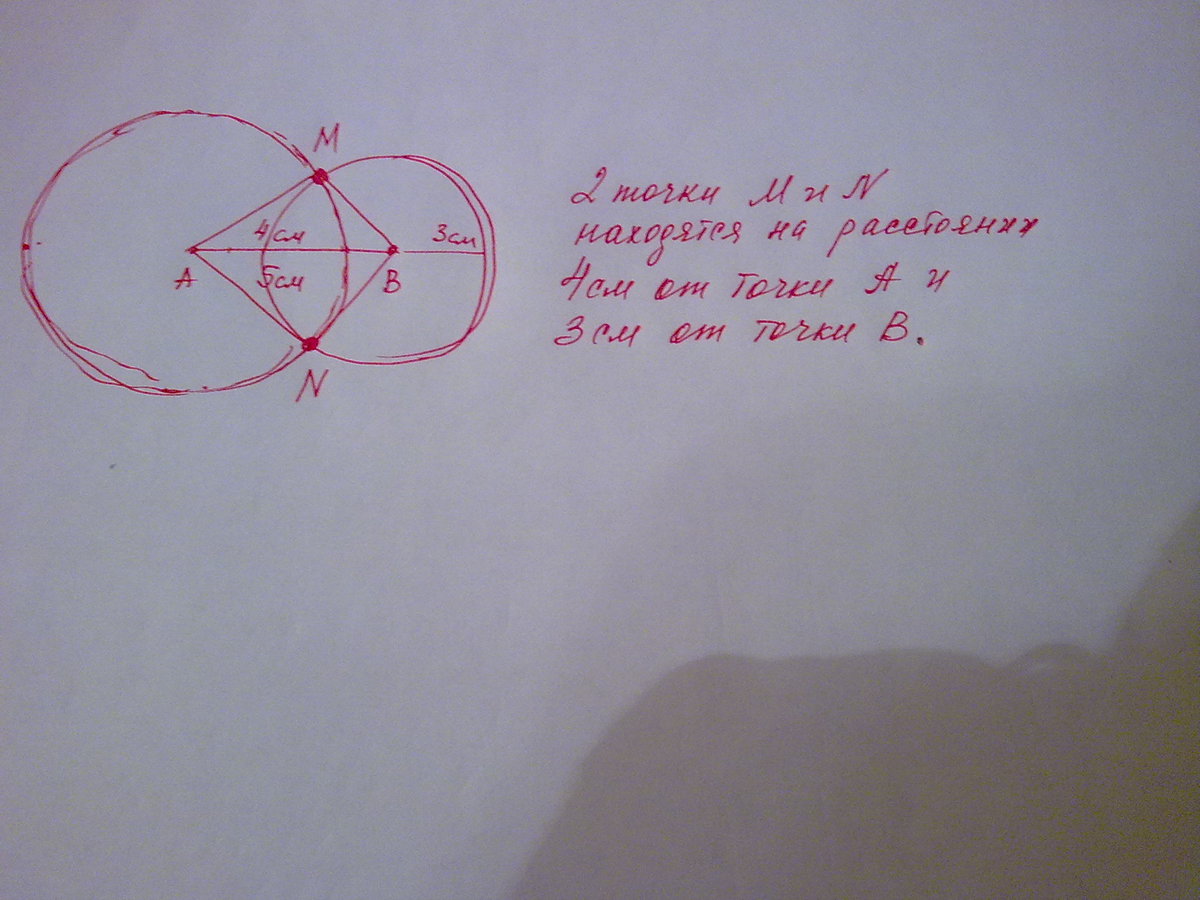 M
4см
3см
A
5см
B
N
2 точки M и N
находятся на расстоянии
4см от точки A и
3см от точки B.